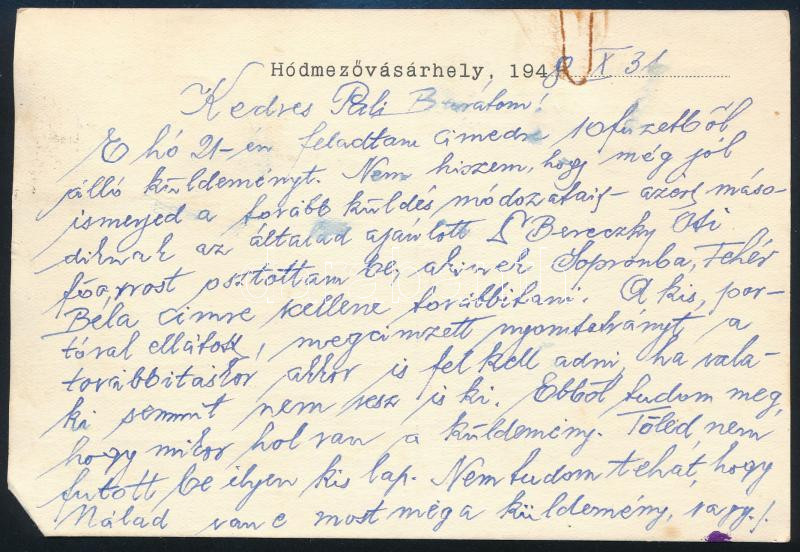 Hódmezővásárhely, 194 X 31
Kedves Pali Barátom!
E hó 21-én feladtam címedre 10 füzetből
álló küldeményt. Nem hiszem, hogy még jól
ismerjed a tovább küldés módozatait – azért máso
diknak az általad ajánlott Bereczky Oti
főorvost osztottam be, akinek Sopronba, Fehér
Béla címre kellene továbbítani. A kis, por-
tóval ellátott, megcímzett nyomtatványt a
továbbításkor akkor is fel kell adni, ha vala-
ki semmit nem vesz is ki. Ebből tudom meg,
hogy mikor hol van a küldemény. Tőled, nem
futott be ilyen kis lap. Nem tudom tehát, hogy
Nálad van e most még a küldemény, vagy ./.